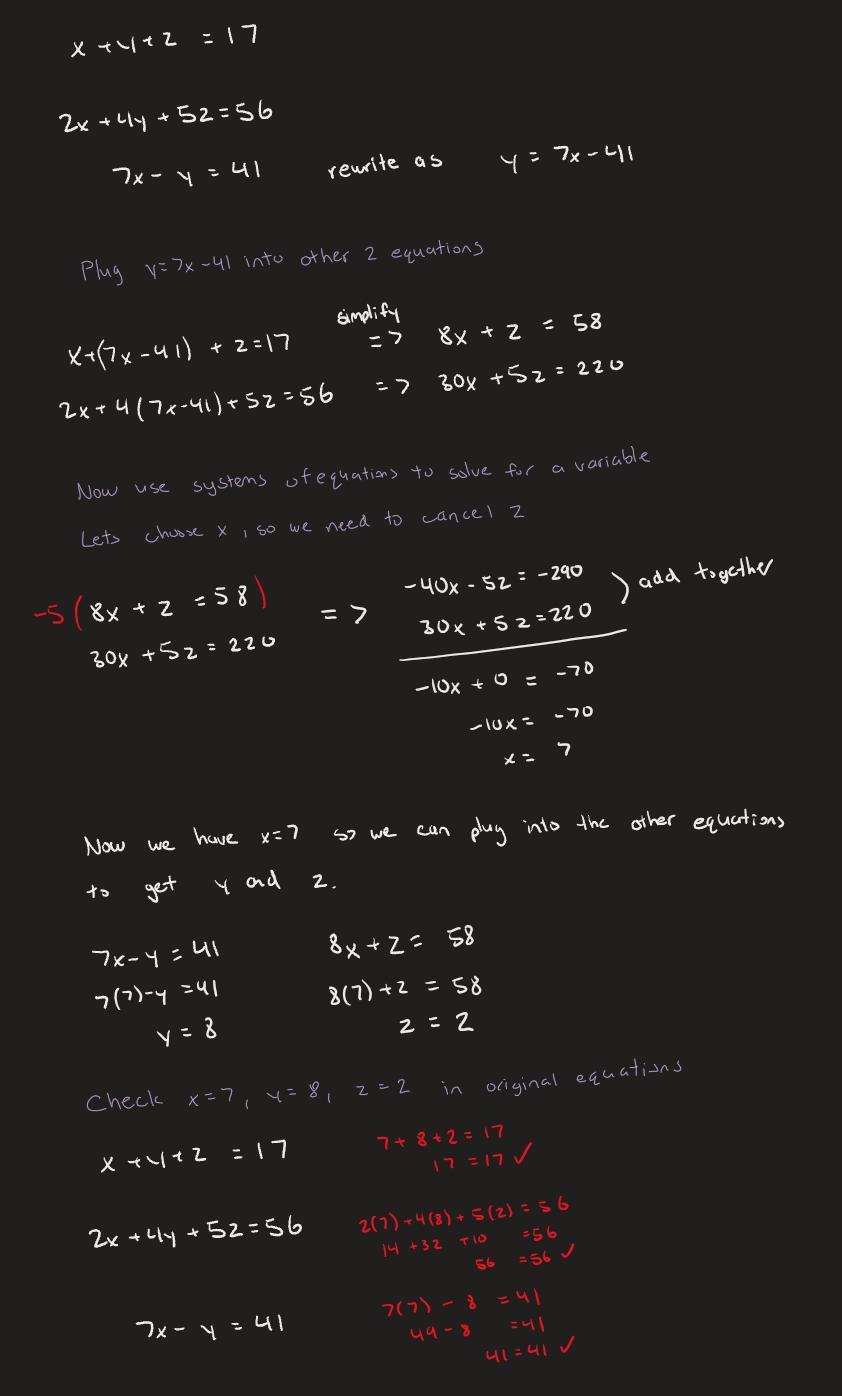 x + y + z = 17
2x + 4y + 5z = 56
7x - y = 41 rewrite as y = 7x - 41
Plug y = 7x - 41 into other 2 equations
simplify
x + (7x - 41) + z = 17 => 8x + z = 58
2x + 4(7x - 41) + 5z = 56 => 30x + 5z = 220
Now use systems of equations to solve for a variable
Lets choose x, so we need to cancel z
-5(8x + z = 58) => -40x - 5z = -290 ) add together
30x + 5z = 220 30x + 5z = 220
-10x + 0 = -70
-10x = -70
x = 7
Now we have x = 7 so we can plug into the other equations
to get y and z.
7x - y = 41 8x + z = 58
7(7) - y = 41 8(7) + z = 58
y = 8 z = 2
Check x = 7, y = 8, z = 2 in original equations
x + y + z = 17 7 + 8 + 2 = 17
17 = 17 ✓
2x + 4y + 5z = 56 2(7) + 4(8) + 5(2) = 56
14 + 32 + 10 = 56
56 = 56 ✓
7x - y = 41 7(7) - 8 = 41
49 - 8 = 41
41 = 41 ✓